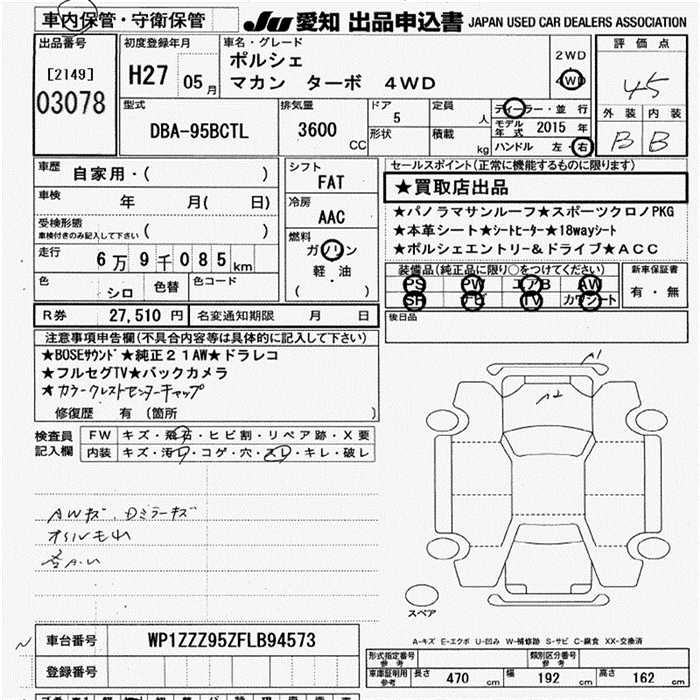 車内保管・守衛保管
JU 愛知 出品申込書 JAPAN USED CAR DEALERS ASSOCIATION
出品番号
[2149]
03078
初度登録年月
H27 05月
車名・グレード
ポルシェ
マカン ターボ 4WD
2WD
4WD
評価点
4.5
外装 内装
B B
型式
DBA-95BCTL
排気量
3600 CC
ドア
5
形状
定員
人
積載
kg
ディーラー・並行
モデル年式 2015 年
ハンドル 左・右
車歴
自家用・( )
車検
年 月( 日)
受検形態
車検付きのみ記入して下さい ( )
走行
6万9千085km
色
シロ
色替
色コード
シフト
FAT
冷房
AAC
燃料
ガソリン
軽・油
( )
セールスポイント(正常に機能するものに限ります)
★買取店出品
★パノラマサンルーフ★スポーツクロノPKG
★本革シート★シートヒーター★18wayシート
★ポルシェエントリー&ドライブ★ACC
装備品(純正品に限り○をつけてください)
PS PW エアB AW
SR ナビ TV カワシート
新車保証書
有・無
R券 27,510 円
名変通知期限 月 日
後日品
注意事項申告欄(不具合内容等は具体的に記入して下さい)
★BOSEサウンド★純正21AW★ドラレコ
★フルセグTV★バックカメラ
★カラークレストセンターキャップ
修復歴 有 (箇所 )
検査員記入欄
FW キズ・飛石・ヒビ割・リペア跡・X要
内装 キズ・汚れ・コゲ・穴・スレ・キレ・破レ
AWキズ、Dミラーキズ
オイルもれ
各A.U
A1
A2
スペア
A-キズ E-エクボ U-凹み W-補修跡 S-サビ C-腐食 XX-交換済
車台番号 WP1ZZZ95ZFLB94573
登録番号
形式指定番号 参考
類別区分番号 参考
車庫証明用 参考 長さ 470 cm 幅 192 cm 高さ 162 cm